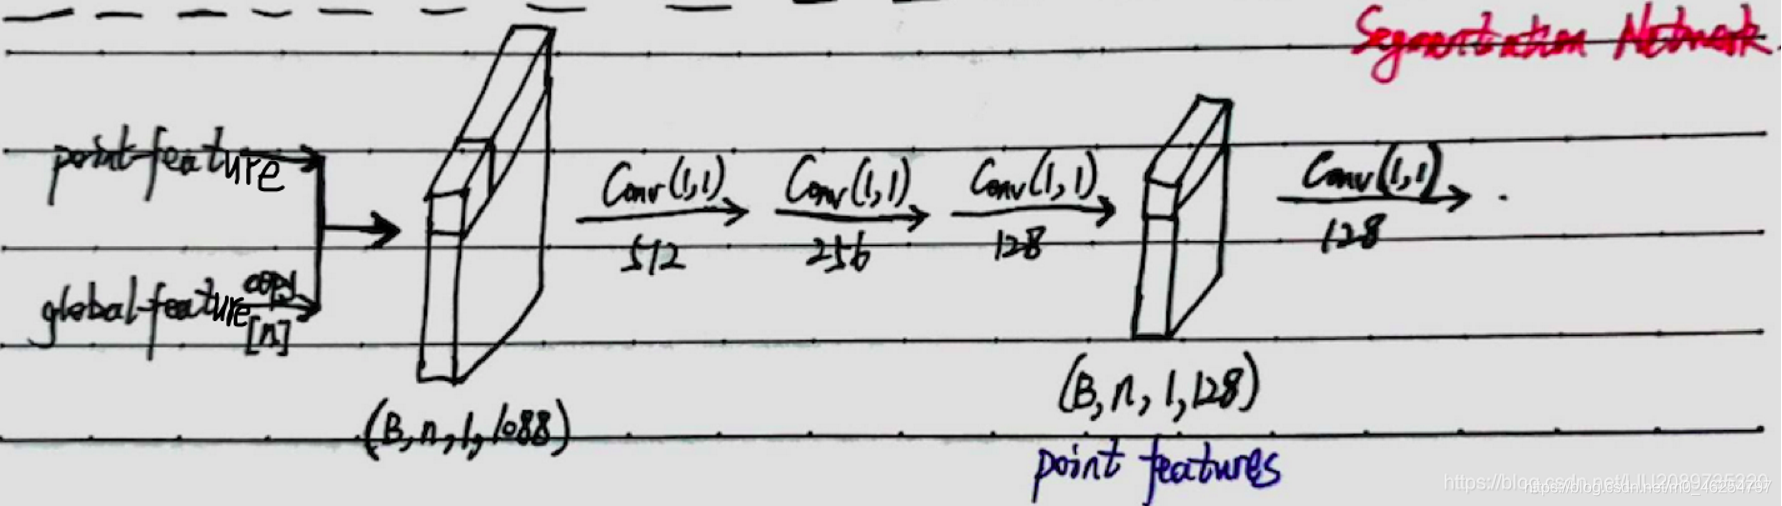 Segmentation Network.
point-feature
global-feature copy [n]
Conv(1,1) 512
Conv(1,1) 256
Conv(1,1) 128
Conv(1,1) 128
(B,n,1,1088)
(B,n,1,128)
point features